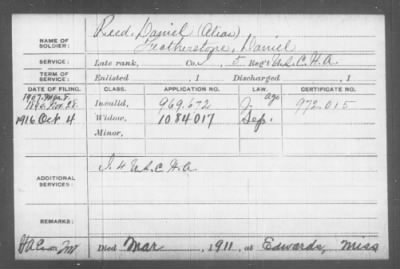 NAME OF SOLDIER: Reed, Daniel (Alias)
Featherstone, Daniel
SERVICE: Late rank, Co. I, 5 Reg't U.S.C.H.A.
TERM OF SERVICE: Enlisted , 1 Discharged , 1
DATE OF FILING. CLASS. APPLICATION NO. LAW. CERTIFICATE NO.
1907 Mar 8 age
Invalid, 969.672 J. 972.015
1916 Oct 4 Widow, 1084017 Sep.
Minor,
ADDITIONAL SERVICES: I 4 U.S.C.H.A.
REMARKS:
Died Mar , 1911, at Edwards, Miss